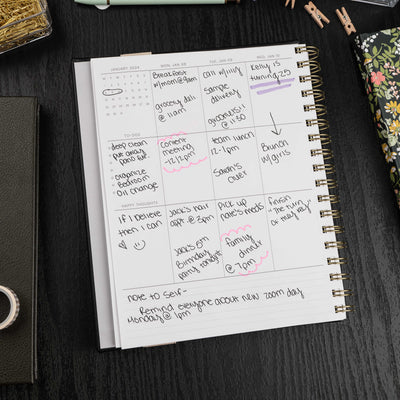 JANUARY 2024
MON, JAN 08
TUE, JAN 09
WED, JAN 10
Breakfast
w/mom @ 9am
grocery deli
@ 11am
call w/lilly
Sample
delivery
groceries!!
@ 11:30
Kelly is
turning 25
TO-DOS
deep clean
put away
organize
Bedroom
oil change
content
meeting
-12/2pm
team lunch
12-1pm
Sarah's
over
Brunch
w/girls
HAPPY THOUGHTS
If I believe
then I can
Jack's hair
apt. @ 3pm
Jack's 6th
Birthday
party tonight
pick up
nate's meds
family
dinner
@ 7pm
finish
"The turn
of they key"
note to self-
Remind everyone about new zoom day
Monday @ 1pm